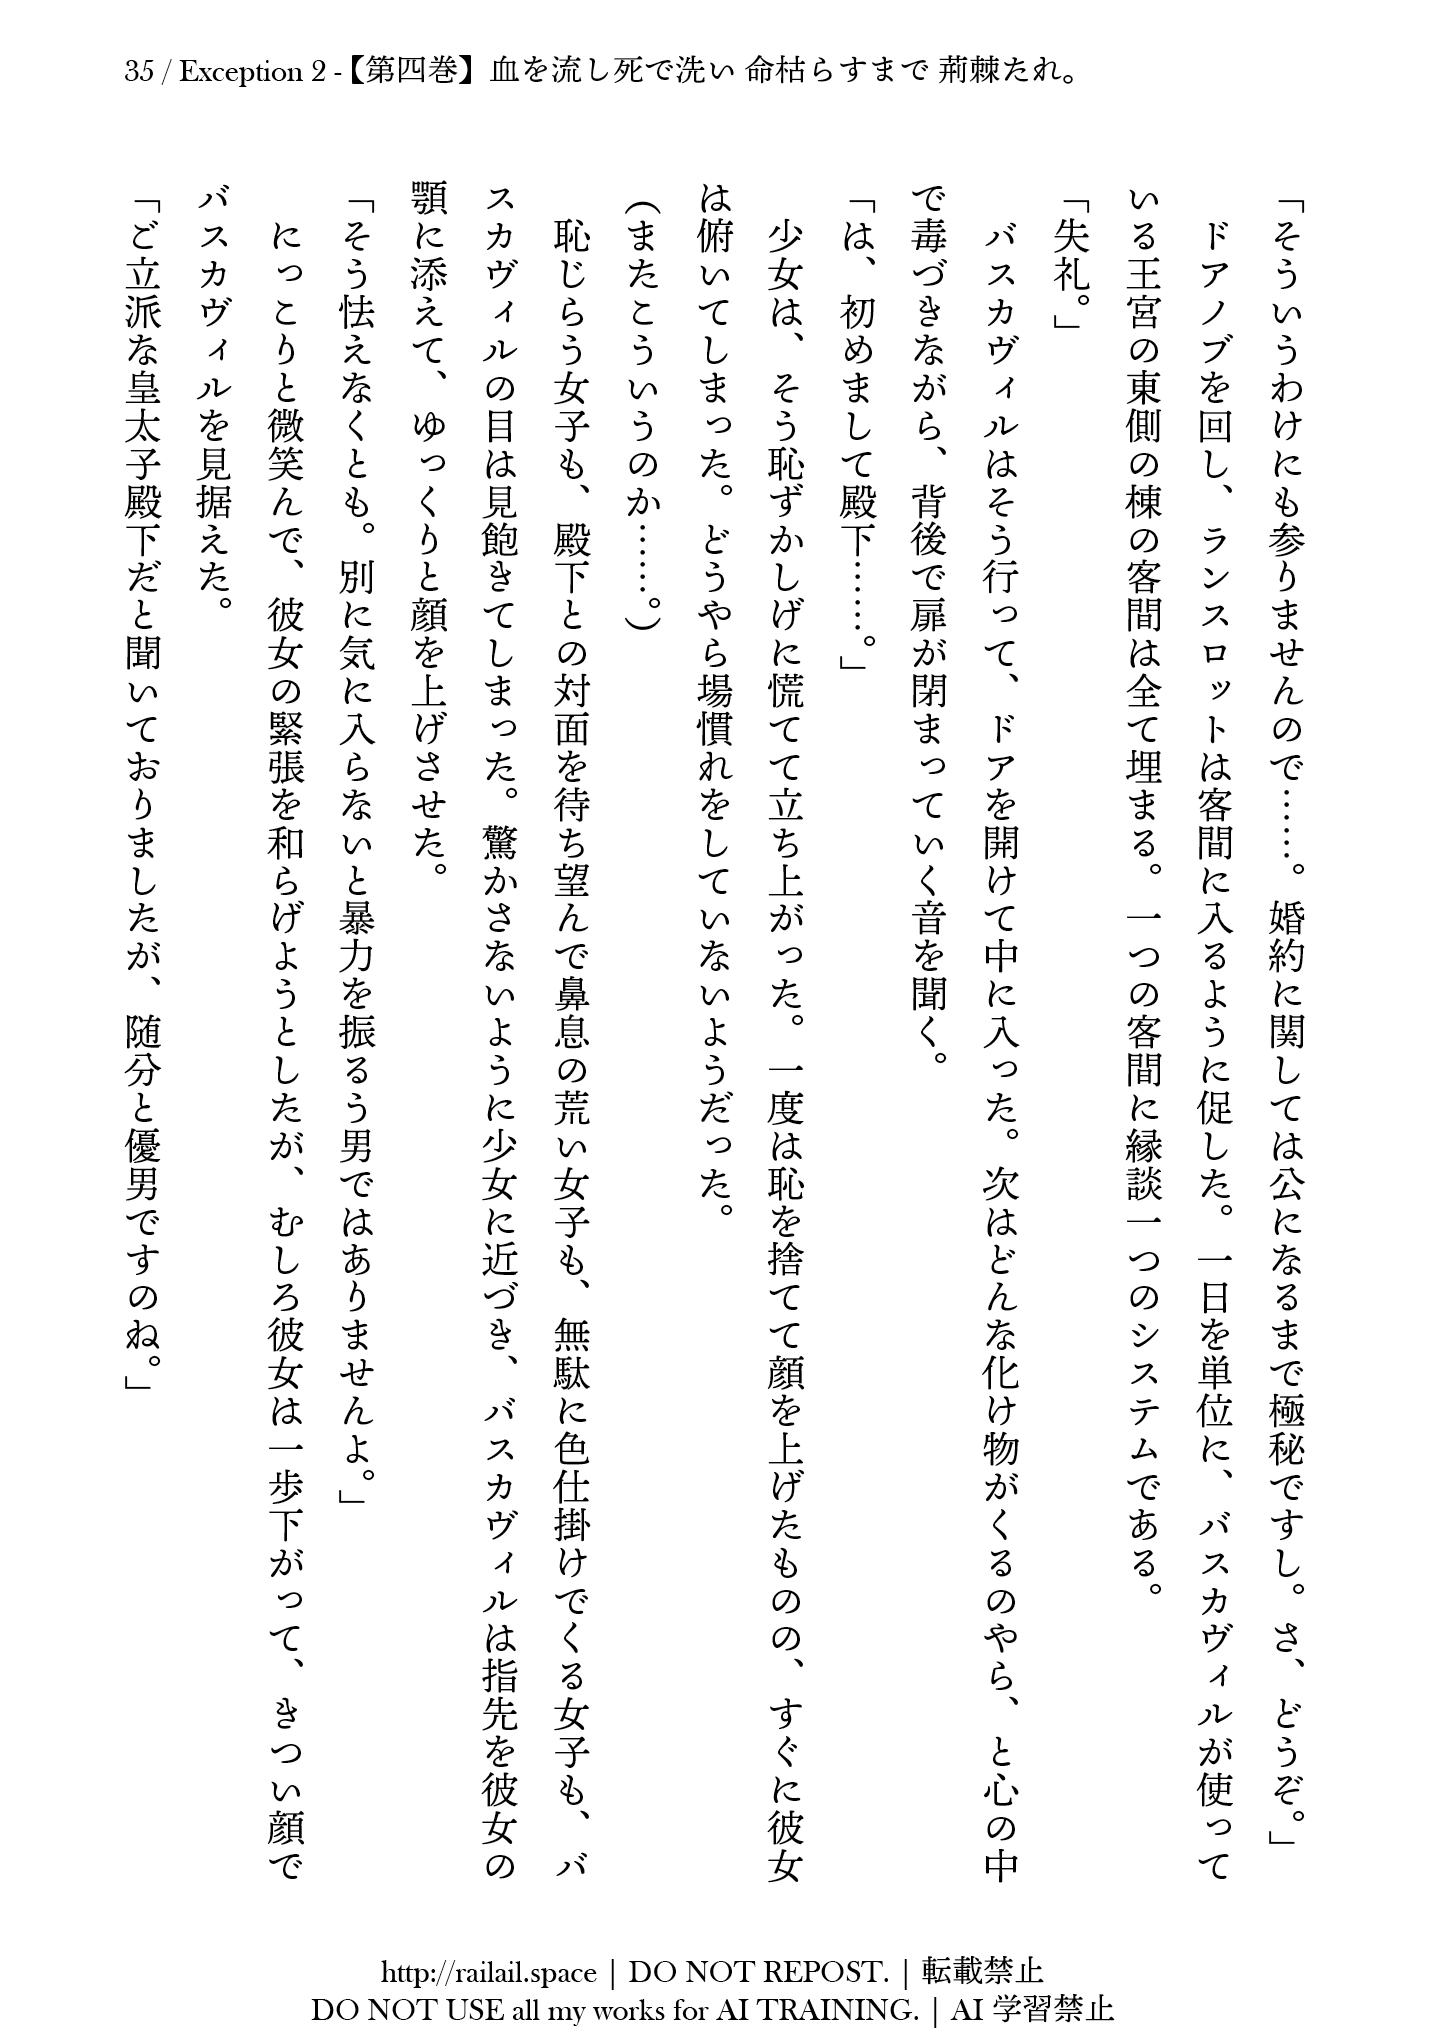 35 / Exception 2 -【第四巻】血を流し死で洗い 命枯らすまで 荊棘たれ。
「そういうわけにも参りませんので……。婚約に関しては公になるまで極秘ですし。さ、どうぞ。」
ドアノブを回し、ランスロットは客間に入るように促した。一日を単位に、バスカヴィルが使って
いる王宮の東側の棟の客間は全て埋まる。一つの客間に縁談一つのシステムである。
「失礼。」
バスカヴィルはそう行って、ドアを開けて中に入った。次はどんな化け物がくるのやら、と心の中
で毒づきながら、背後で扉が閉まっていく音を聞く。
「は、初めまして殿下……。」
少女は、そう恥ずかしげに慌てて立ち上がった。一度は恥を捨てて顔を上げたものの、すぐに彼女
は俯いてしまった。どうやら場慣れをしていないようだった。
(またこういうのか……。)
恥じらう女子も、殿下との対面を待ち望んで鼻息の荒い女子も、無駄に色仕掛けでくる女子も、バ
スカヴィルの目は見飽きてしまった。驚かさないように少女に近づき、バスカヴィルは指先を彼女の
顎に添えて、ゆっくりと顔を上げさせた。
「そう怯えなくとも。別に気に入らないと暴力を振るう男ではありませんよ。」
にっこりと微笑んで、彼女の緊張を和らげようとしたが、むしろ彼女は一歩下がって、きつい顔で
バスカヴィルを見据えた。
「ご立派な皇太子殿下だと聞いておりましたが、随分と優男ですのね。」
http://railail.space | DO NOT REPOST. | 転載禁止
DO NOT USE all my works for AI TRAINING. | AI 学習禁止